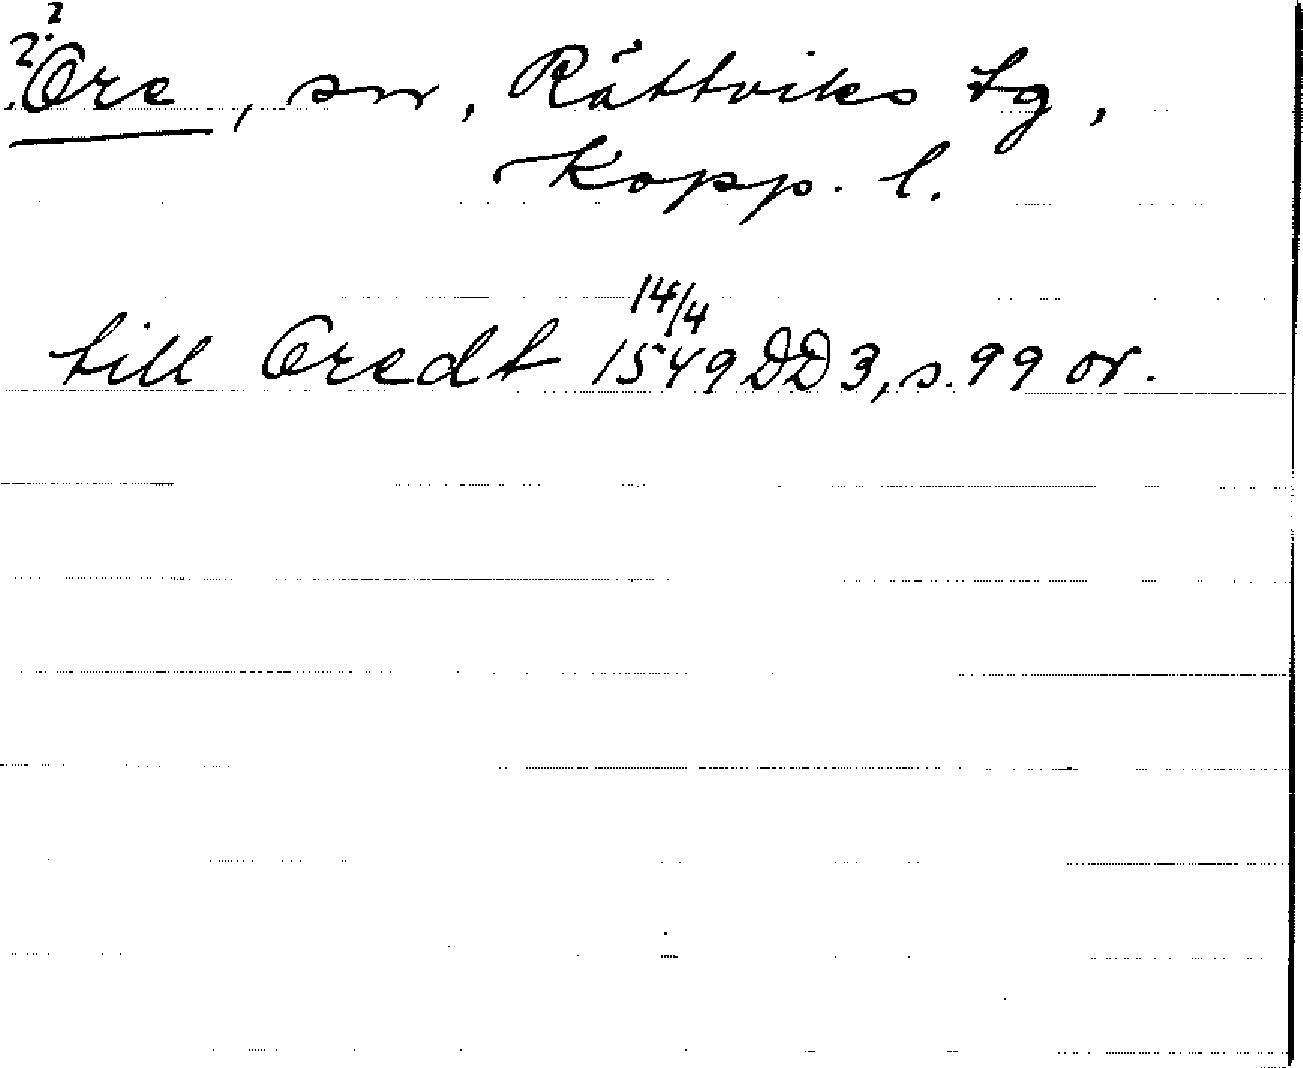 2.2
Ore, sn, Rättviks tg,
Kopp. l.
14/4
till Oredt 1549 DD 3, s. 99 or.